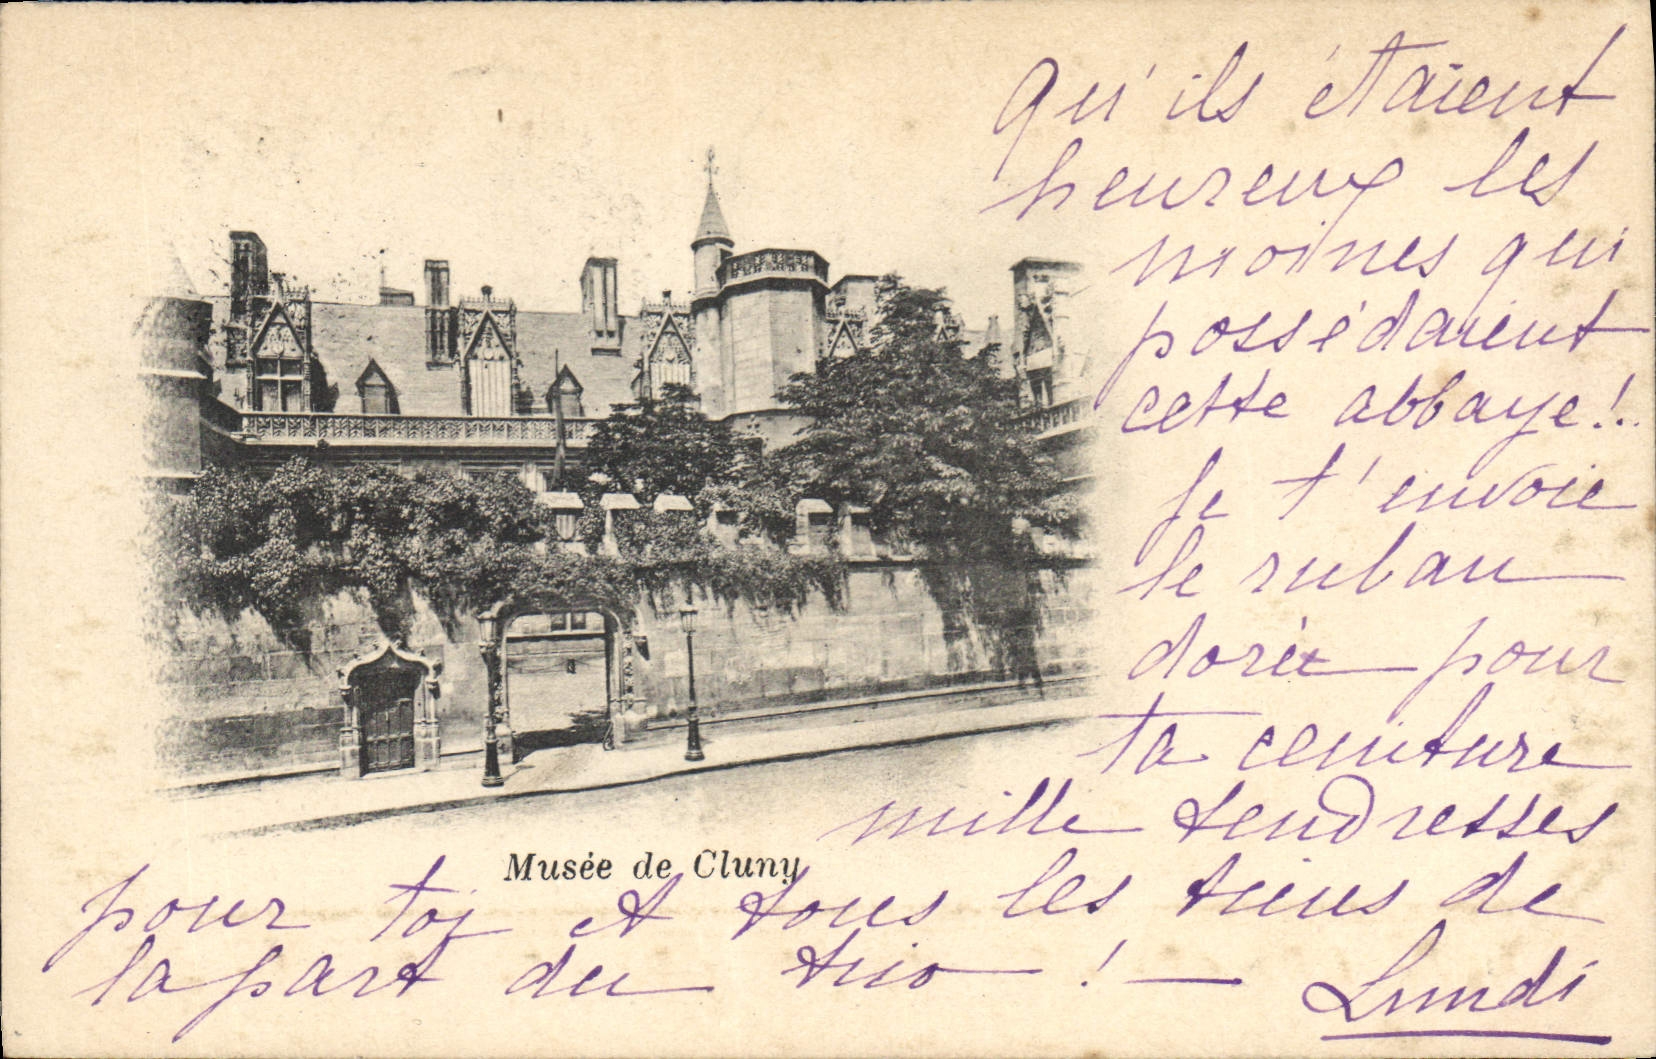 Qu'ils étaient
heureux les
moines qui
possédaient
cette abbaye!..
Je t'envoie
le ruban
dorée pour
ta ceinture
mille tendresses
Musée de Cluny
pour toi et tous les tiens de
la part du trio! —
Lundi